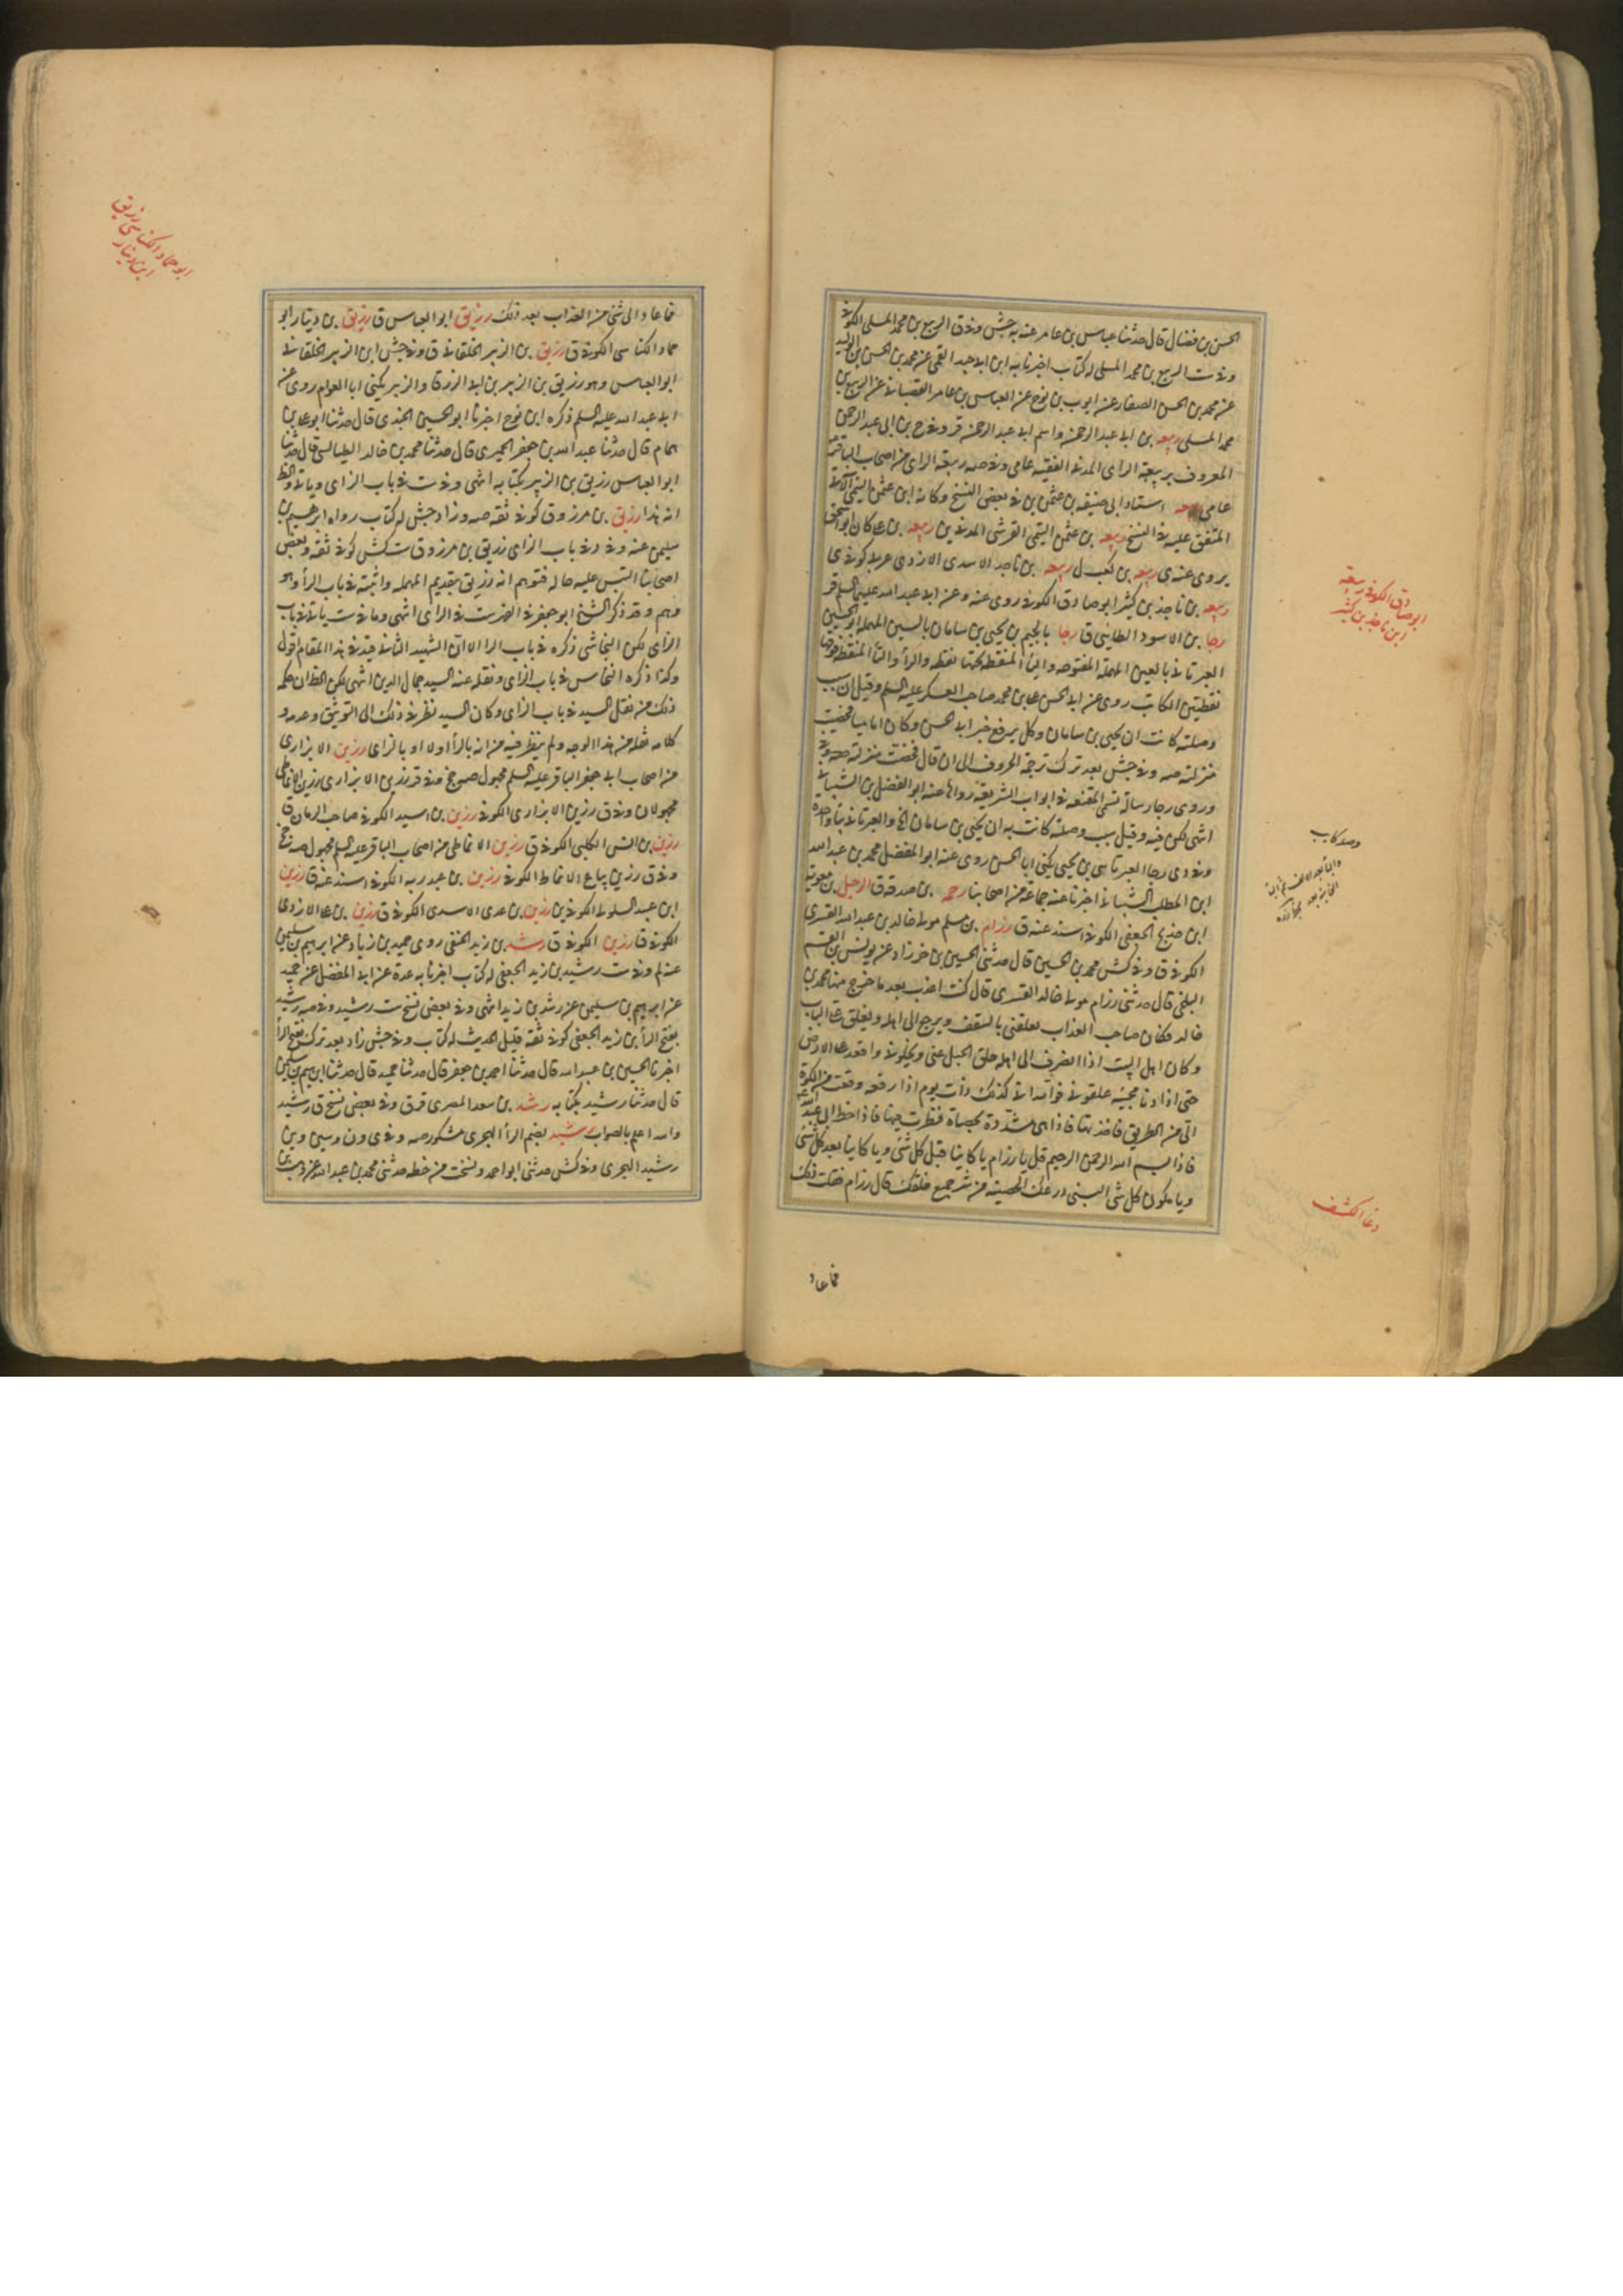 الحسن بن فضال قال حدثنا عباس بن عامر عنه به جش وفي ق الربيع بن محمد المسلي الكوفي
وفي ست الربيع بن محمد المسلي له كتاب اخبرنا به ابن ابي جيد القمي عن محمد بن الحسن بن الوليد
عن محمد بن الحسن الصفار عن ايوب بن نوح عن العباس بن عامر القصباني عن الربيع بن
محمد المسلي ربيعه بن ابي عبد الرحمن واسم ابي عبد الرحمن فروخ بن ابي عبد الرحمن
المعروف بربيعة الراي المدني الفقيه عامي وفي صه ربيعة الراي من اصحاب الباقر
عامي ربيعه استاد ابي حنيفه بن عثمن بن في بعض النسخ وكانه ابن عثمن التيمي
المتفق عليه في النسخ ربيعه بن عثمن التيمي القرشي المدني ين ربيعه بن علي كان ابو اسحق
يروي عنه ي ربيعه بن كعب ل ربيعه بن ناجد الاسدي الازدي عربي كوفي ي
ربيعه بن ناجذ بن كثير ابو صادق الكوفي روى عنه وعن ابي عبد الله عليهما السلم قر
رجا بن الاسود الطايي ق رجا بالجيم بن يحيى بن سامان بالسين المهملة ابو الحسين
العبرتاني بالعين المهملة المفتوحه والبا المنقطه تحتها نقطه والرا والتا المنقطه فوقها
نقطتين الكاتب روى عن ابي الحسن علي بن محمد صاحب العسكر عليه السلم وقيل ان سبب
وصلته كانت ان يحيى بن سامان وكل برفع خبر ابي الحسن وكان اماميا فحظيت
منزلته صه وفي جش بعد ترك ترجمة الحروف الى ان قال فحظت منزلته
وروى رجا رسالة تسمى المقنعه في ابواب الشريعة رواها عنه ابو المفضل بن الشيباني
انتهى لكن فيه وقيل سبب وصلته كانت به ان يحيى بن سامان الخ والعبرتاني بتا واحده
وفي دي رجا العبرتاسي بن يحيى يكنى ابا الحسن روى عنه ابو المفضل محمد بن عبد الله
ابن المطلب الشيباني اخبرنا عنه جماعة من اصحابنا رحمه بن صدقه ق الرحيل بن معوية
ابن خديج الجعفي الكوفي اسند عنه ق رزام بن مسلم مولى خالد بن عبد الله القسري
الكوفي ق وفي كش محمد بن الحسين قال حدثني الحسين بن خرزاد عن يونس بن القسم
البلخي قال حدثني رزام مولى خالد القسري قال كنت اعذب بعد ما خرج منها محمد بن
خالد فكان صاحب العذاب يعلقني بالسقف ويرجع الى اهله ويغلق علي الباب
وكان اهل البيت اذا انصرف الى اهله حلق الحبل عني ويخلوني واقعد على الارض
حتى اذا دنا مجيئه علقوني فوالله اني كذلك ذات يوم اذا رقعه وقعت من الكوة
الي من الطريق فاخذتها فاذا هي مشدودة بحصاة فنظرت فيها فاذا خط ابي عبد الله ع
فاذا بسم الله الرحمن الرحيم قل يا رزام يا كاينا قبل كل شئ ويا كاينا بعد كل شئ
ويا مكون كل شئ البسني درعك الحصينه من شر جميع خلقك قال رزام فقلت ذلك
فما عاد
ابو صادق الكوفي ربيعة
ابن ناجذ بن كثير
وصد كاتب
دعاء الكشف
فما عاد الى شئ من العذاب بعد ذلك رزيق ابو العباس ق رزيق بن دينار ابو
حماد الكناسي الكوفي ق رزيق بن الزبير الخلقاني ق وفي جش ابن الزبير الخلقاني
ابو العباس وهو رزيق بن الزبير بن ابي الزرقا والزبير يكنى ابا العوام روى عن
ابي عبد الله عليه السلم ذكره ابن نوح اخبرنا ابو الحسين الجندي قال حدثنا ابو علي بن
همام قال حدثنا عبد الله بن جعفر الحميري قال حدثنا محمد بن خالد الطيالسي قال حدثنا
ابو العباس رزيق بن الزبير بكتابه انتهى وفي ست في باب الزاي وياتي والظ
انه هذا رزيق بن مرزوق كوفي ثقه صه وزاد جش له كتاب رواه ابرهيم بن
سليمن عنه وفي د في باب الزاي زريق بن مرزوق ست كش كوفي ثقه وبعض
اصحابنا التبس عليه حاله فتوهم انه رزيق بتقديم المهمله واثبته في باب الرا وهو
وهم وقد ذكر الشيخ ابو جعفر في الفهرست في الزاي انتهى وما في ست ياتي في باب
الزاي لكن النجاشي ذكره في باب الرا الا ان الشهيد الثاني قيد في هذا المقام اقول
وكذا ذكره النجاشي في باب الزاي ونقله عنه السيد جمال الدين انتهى لكن الظ ان حكمه
ذلك من نقل السيد في باب الزاي وكان السيد نظر في ذلك الى التوثيق وعدمه و
كلامه نقله من هذا الوجه ولم ينظر فيه من انه بالرا اولا او بالزاي رزين الابزاري
من اصحاب ابي جعفر الباقر عليه السلم مجهول صه وفي قر رزين الابزاري رزين الانماطي
مجهولان وفي ق رزين الابزاري الكوفي رزين بن اسيد الكوفي صاحب الرمان ق
رزين بن انس الكلبي الكوفي ق رزين الانماطي من اصحاب الباقر عليه السلم مجهول صه جخ
وفي ق رزين بياع الانماط الكوفي رزين بن عبد ربه الكوفي اسند عنه ق رزين
ابن عبيد السلولي الكوفي ين رزين بن عدي الاسدي الكوفي ق رزين بن علي الازدي
الكوفي ق رزين الكوفي ق رشد بن زيد الحنفي روى حميد بن زياد عن ابرهيم بن سليمن
عنه لم وفي ست رشيد بن زيد الجعفي له كتاب اخبرنا به عدة عن ابي المفضل عن حميد
عن ابرهيم بن سليمن عن رشد بن زيد انتهى وفي بعض نسخ ست رشيد وفي صه رشيد
بفتح الرا بن زيد الجعفي كوفي ثقه قليل الحديث له كتاب وفي جش زاد بعد ترك بفتح الرا
اخبرنا الحسين بن عبيد الله قال حدثنا احمد بن جعفر قال حدثنا حميد قال حدثنا ابرهيم بن سليمن
قال حدثنا رشيد بكتابه رشد بن سعد المصري قر ق وفي بعض نسخ ق رشيد
والله اعلم بالصواب رشيد بضم الرا الهجري مشكور صه وفي ي ون وسين وين
رشيد الهجري وفي كش حدثني ابو احمد ونسخت من خطه حدثني محمد بن عبد الله عن وهب بن
ابو حماد الكناسي رزيق
ابن دينار